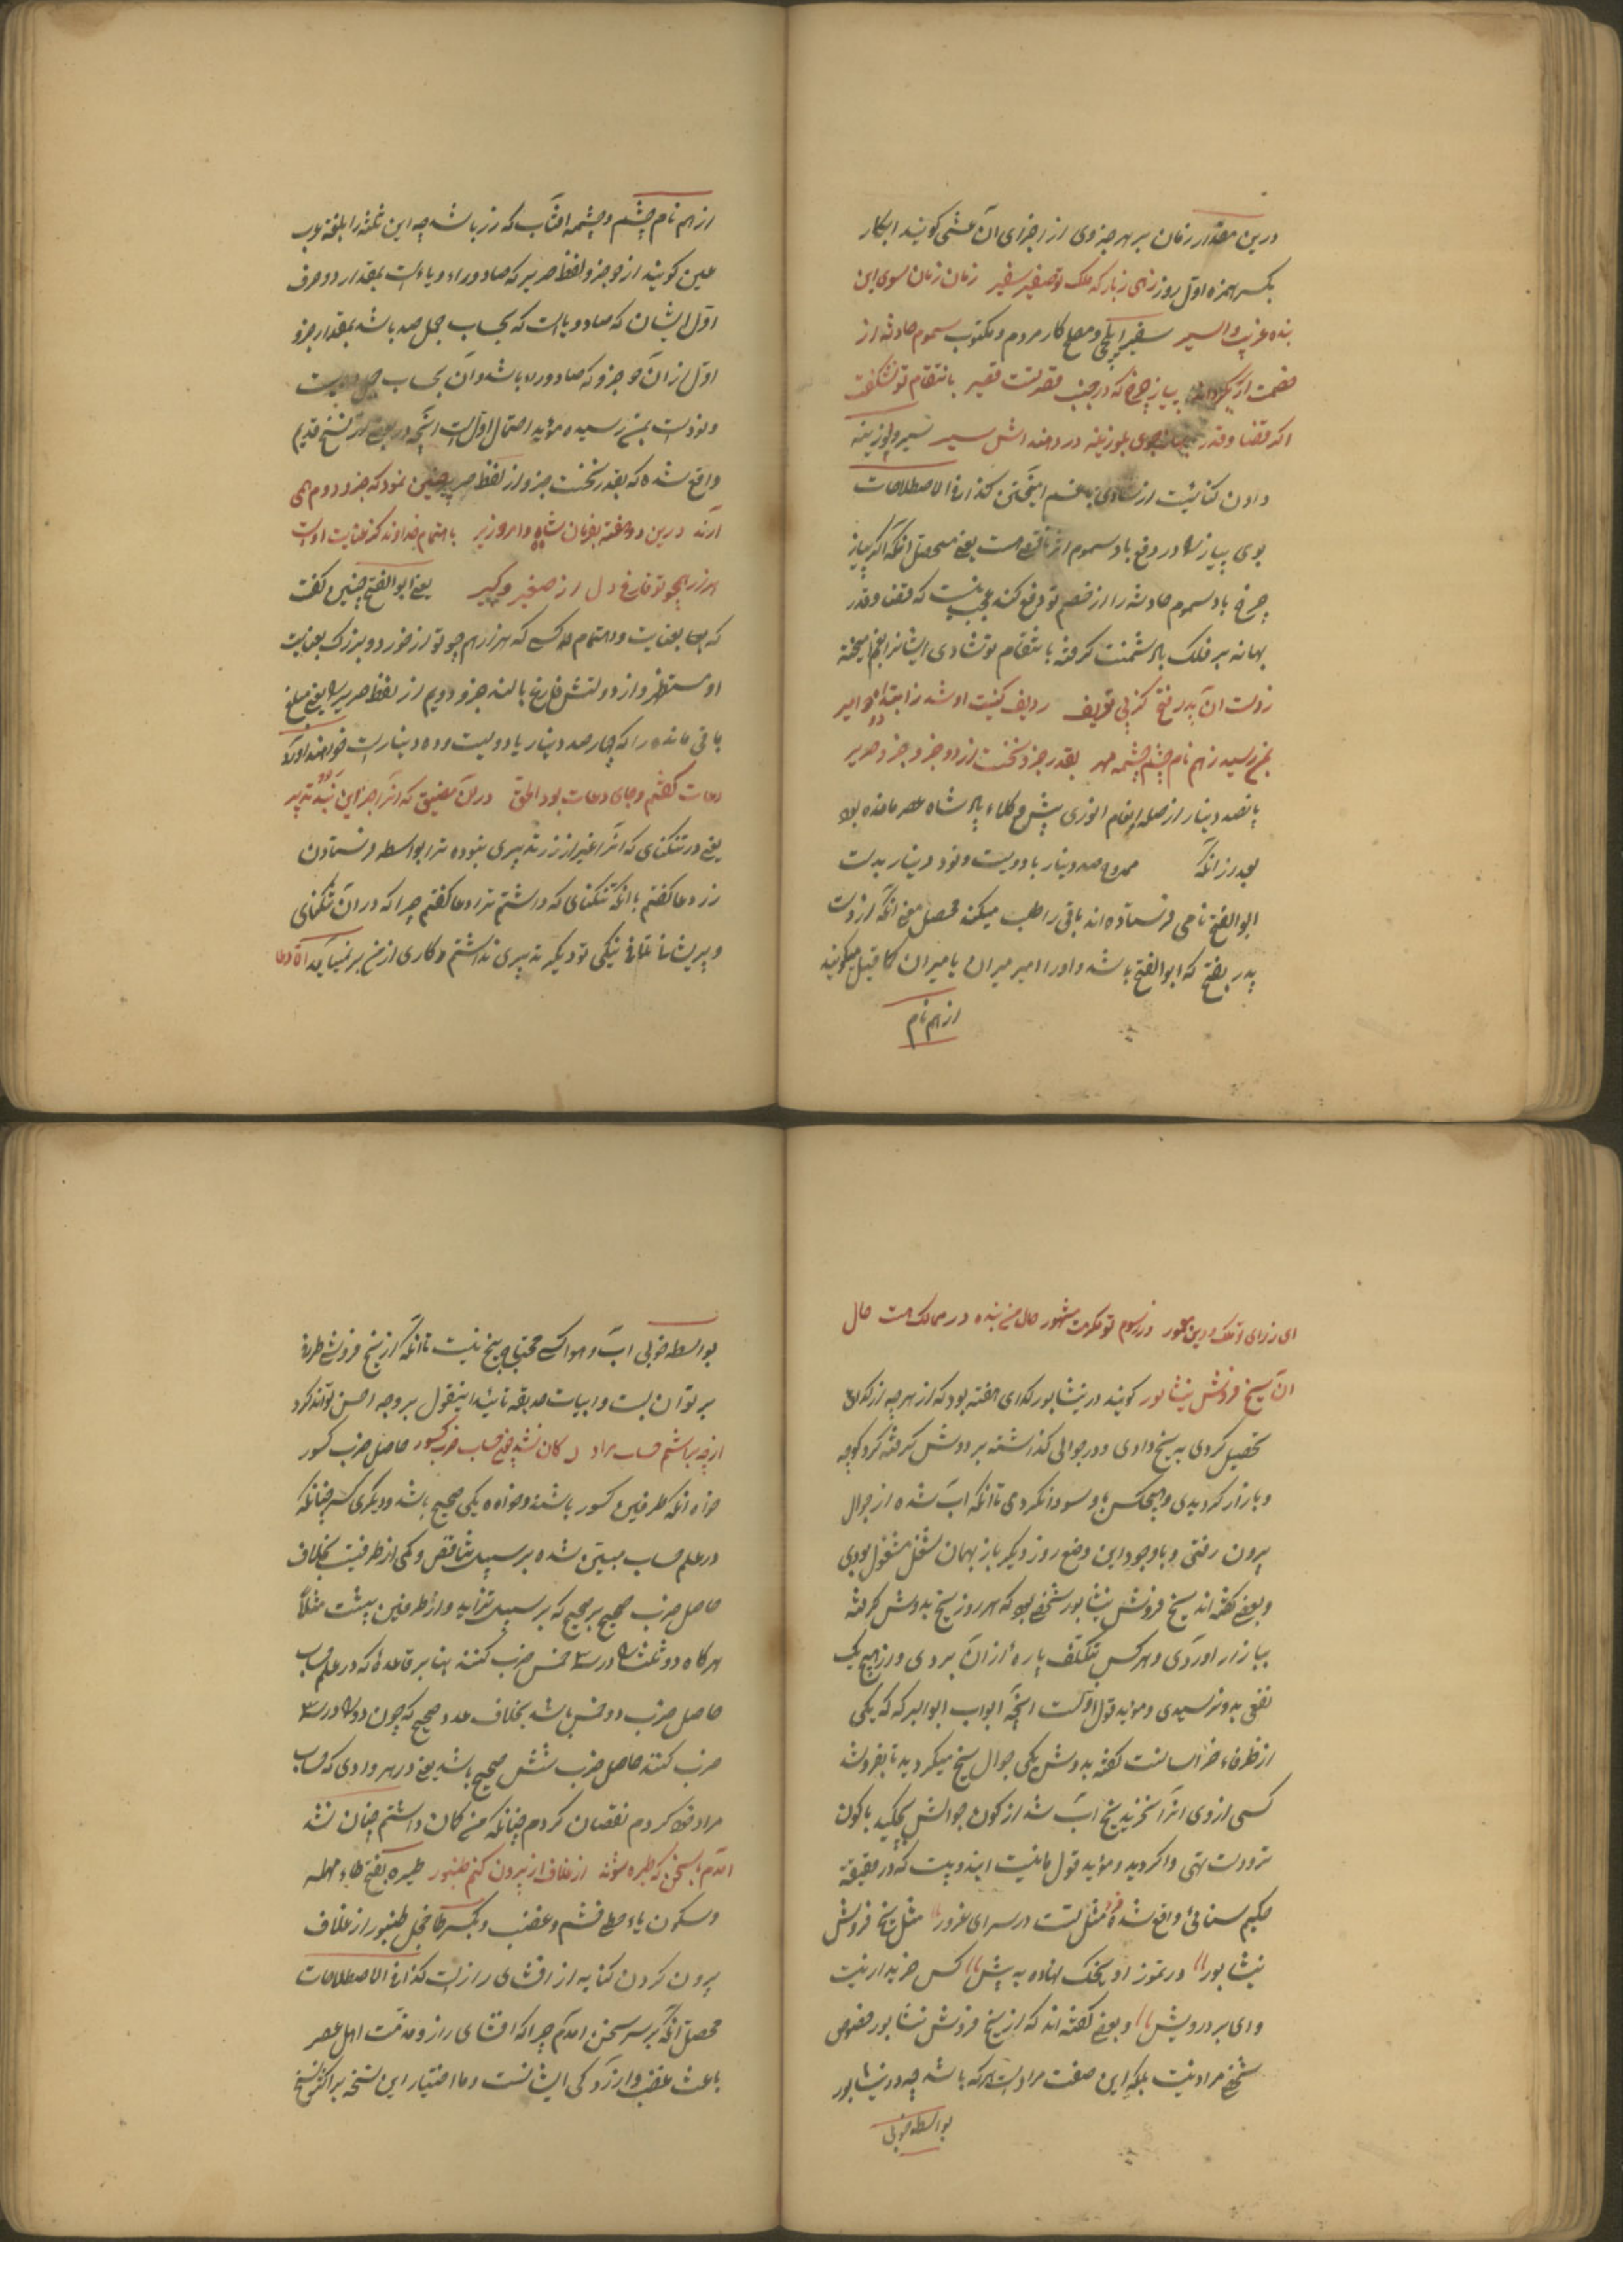 درین مقدار زمان بر هر جزوی از اجزای آن عشی کویند ابکار
بکسر همزه اول روز زهی زبار که ملک تو صغیر سفیر زمان زمان سوی این
بنده غریب و اسیر سفیر ایلچی و مصلح کار مردم و مکتوب سموم حادثه از
پیاز چرخ که در جنب قدرتست قصیر بانتقام تو نشکفت
اکر قضا و قدر بجای جوی بلوزینه در دهند اش سیر سیر و لوزینه
دادن کنایتست از شادی با غم امیختن کذا فی الاصطلاحات
بوی پیاز را در دفع باد سموم اثر نافع است یعنی محصل انکه اکر پیاز
چرخ باد سموم حادثه را از خصم تو دفع کند عجب نیست که قضا و قدر
بهانه بر فلک بالا دشمنت کرفته بانتقام تو شادی ایشانرا بغم امیخته
زدست ان پدر فتح کز پی تعریف ردیف کنیت او شد ز ابتدا دو امیر
بمن رسید ز هم نام چشم چشمه مهر بقدر جزو نخست از دو جزو جزو حریر
پانصد دینار از صله انعام انوری پیش وکلاء پادشاه عصر مانده بود
بعد از انکه ممدوح صد دینار یا دویست و نود دینار بدست
ابو الفتح نامی فرستاده اند باقی را طلب میکند محصل معنی انکه از دست
پدر بفتح که ابو الفتح باشد و او را امیر میران یا میران کا قیل میکویند
از هم نام
از هم نام چشم و چشمه افتاب که زر باشد چه این ثلثه را بلغة عرب
عین کویند از دو جزو لفظ صریر که صاد و راء و یاء است بمقدار دو حرف
اول ایشان که صاد و یا است که بحساب جمل صد باشد بمقدار جزو
اول از آن دو جزو که صاد و ره باشد و آن بحساب جمل دویست
و نود است بمن رسیده مؤید احتمال اول است انچه در بعضی از نسخ قدیم
واقع شده که بقدر نخست جزو از لفظ صریر چنین نمود که جزو دوم همی
آرند درین دو هفته بفرمان شاه و امر وزیر باهتمام خداوند کز عنایت اوست
هزار همچو تو فارغ دل از صغیر و کبیر یعنی ابو الفتح چنین کفت
که بعنایت و اهتمام که هزار هم چو تو از خورد و بزرک بعنایت
او مستظهر و از دولتش فارغ بالند جزو دویم از لفظ صریر را یعنی مبلغ
باقی مانده را که چهار صد دینار یا دویست و ده دینار است خواهند اورد
دعات کفتم و جای دعات بود الحق در آن مضیق که انرا جز این نبد تدبیر
یعنی در تنکنای که انرا غیر از زر تدبیری نبوده ترا بواسطه فرستادن
زر دعا کفتم با انکه تنکنای که داشتم ترا دعا کفتم چرا که در آن تنکنای
و پریشانی تلافی نیکی تو دیکر تدبیری نداشتم و کاری از من بر نمیاید الا دعا
ای رزای تو ملک و دین معمور در رسوم تو مکرمت مشهور حال من بنده در ممالک هست حال
ان یخ فروش نیشابور کویند در نیشابور کدای هفته بود که از هر چه از کدای
تحصیل کردی به یخ دادی و در جوالی کذاشته بر دوش کرفته کرد کوچه
و بازار کردیدی و هیچکس با او سودا نکردی تا انکه اب شده از جوال
بیرون رفتی و با وجود این وضع روز دیکر باز بهمان شغل مشغول بودی
و بعضی کفته اند یخ فروش نیشابور شخصی بود که هر روز یخ بدوش کرفته
ببازار اوردی و هر کس بتکلف پاره از آن بردی و از هیچ یک
نفعی بدو نرسیدی و مؤید قول اولست انچه ابواب ابو البرکه که یکی
از ظرفاء خراسانست کفته بدوش یکی جوال یخ میکردید تا بفروشد
کسی از وی انرا نخرید یخ اب شد از کون جوالش بچکید با کون
تر و دست تهی واکردید و مؤید قول ثانیست این دو بیت که در حدیقه
حکیم سنائی واقع شده فرد مثلت هست در سرای غرور مثل یخ فروش
نیشابور در تموز او یخک نهاده به پیش کس خریدار نیست
وای بر درویش و بعضی کفته اند که از یخ فروش نیشابور خصوص
شخصی مراد نیست بلکه این صفت مراد است هر که باشد چه در نیشابور
بواسطه خوبی
بواسطه خوبی اب و هوا کسی محتاج یخ نیست تا انکه از یخ فروشی طرفه
بر تواند بست و ابیات حدیقه تائید اینقول بر وجه احسن تواند کرد
از چه برداشتم حساب مراد ان کان نشد چون حساب ضرب کسور حاصل ضرب کسور
خواه انکه طرفین کسور باشند و خواه یکی صحیح باشد و دیکری کسر چنانکه
در علم حساب مبین شده بر سبیل تناقص و کمی از طرفینست بخلاف
حاصل ضرب صحیح بر صحیح که بر سبیل تزاید و از طرفین بیشت مثلاً
هر کاه دو ثلث را در سه خمس ضرب کنند بنا بر قاعده که در علم حساب
حاصل ضرب دو خمس باشد بخلاف عدد صحیح که چون دو را در سه
ضرب کنند حاصل ضرب شش صحیح باشد یعنی در هر وادی که حساب
مراد خود کردم نقصان کردم چنانکه من کان داشتم چنان نشد
آمدم با سخن که طیره شوند از غلاف از برون کنم طنبور طیره بفتح طاء مهمله
و سکون یاء حطی خشم و غضب و بکسر طا خجل طنبور از غلاف
بیرون کردن کنایه از افشای راز است کذا فی الاصطلاحات
محصل انکه بر سر سخن امدم چرا که افشای راز و مذمت اهل عصر
باعث غضب و ازردکی ایشانست و ما اختیار این نسخه بر اکثر نسخ